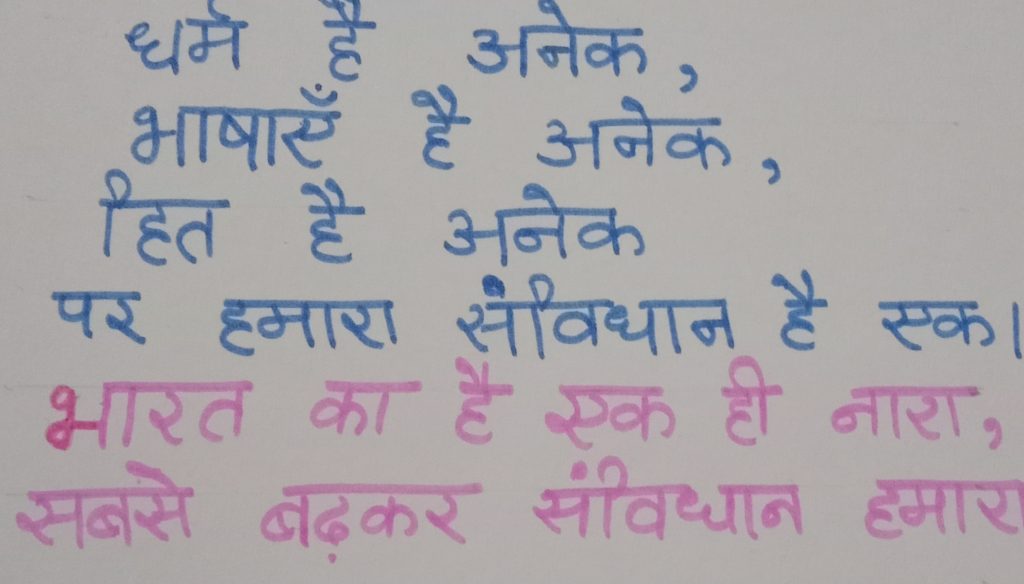 धर्म है अनेक,
भाषाएँ है अनेक,
हित है अनेक
पर हमारा संविधान है एक।
भारत का है एक ही नारा,
सबसे बढ़कर संविधान हमारा